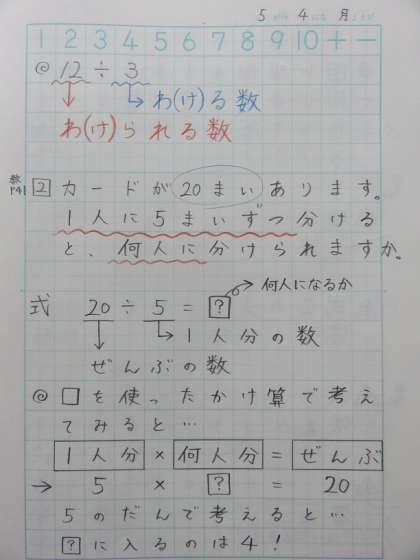 5 4 月
1 2 3 4 5 6 7 8 9 10 + −
◎ 12 ÷ 3
わ(け)る数
わ(け)られる数
教 P41
2 カードが20まいあります。
1人に5まいずつ分ける
と、何人に分けられますか。
何人になるか
式 20 ÷ 5 = ?
1人分の数
ぜんぶの数
◎ □を使ったかけ算で考え
てみると…
1人分 × 何人分 = ぜんぶ
→ 5 × ? = 20
5のだんで考えると…
?に入るのは4!